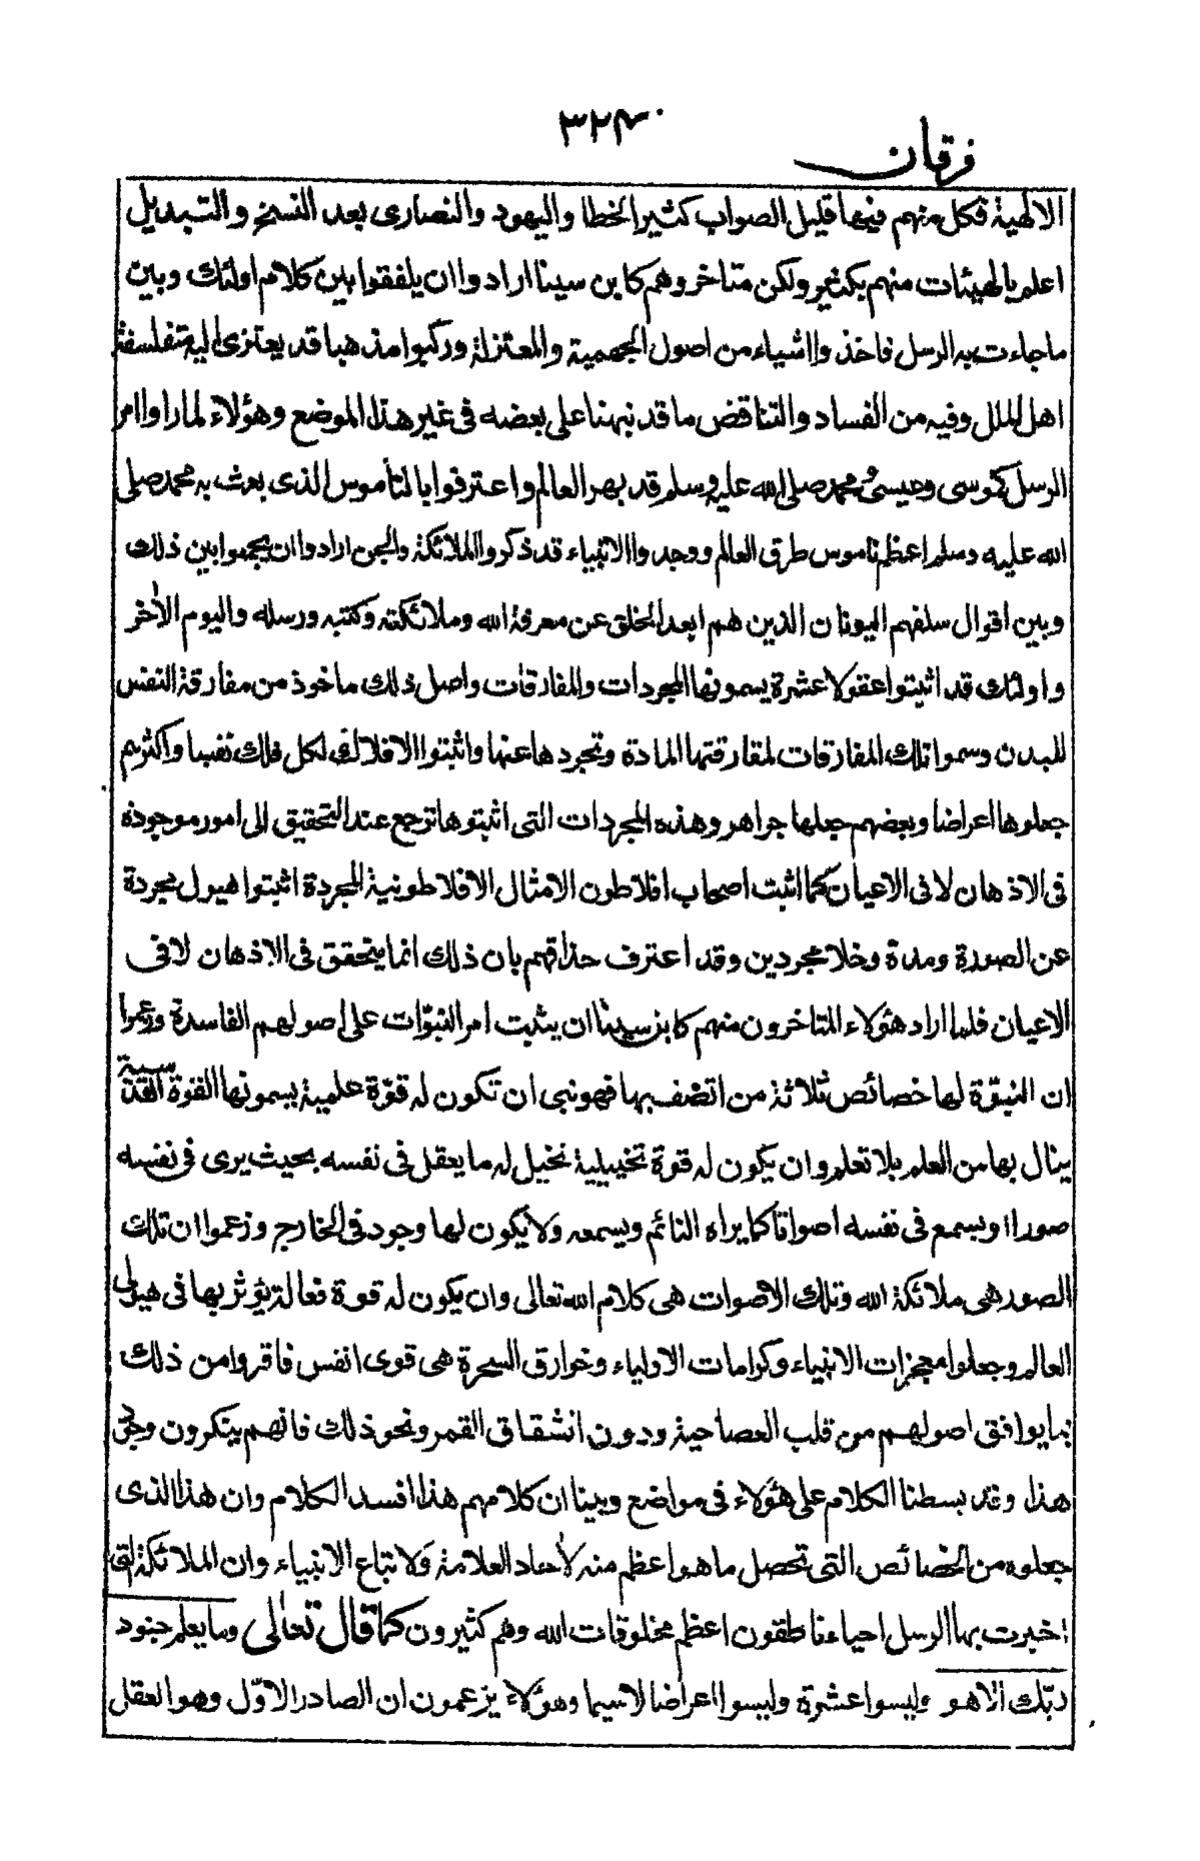 فرقان
الالهية فكل منهم فيها قليل الصواب كثير الخطا واليهود والنصارى بعد النسخ والتبديل
اعلم بالهيئات منهم بكثير ولكن متاخروهم كابن سينا ارادوا ان يلفقوا بين كلام اولئك وبين
ماجاءت به الرسل فاخذوا اشياء من اصول الجهمية والمعتزلة وركبوا مذهبا قد يعتزى اليه متفلسفة
اهل الملل وفيه من الفساد والتناقض ما قد نبهنا على بعضه فى غير هذا الموضع وهؤلاء لما راوا امر
الرسل كموسى وعيسى ومحمد صلى الله عليه وسلم قد بهر العالم واعترفوا بالناموس الذى بعث به محمد صلى
الله عليه وسلم اعظم ناموس طرق العالم ووجدوا الانبياء قد ذكروا الملائكة والجن ارادوا ان يجمعوا بين ذلك
وبين اقوال سلفهم اليونان الذين هم ابعد الخلق عن معرفة الله وملائكته وكتبه ورسله واليوم الاخر
واولئك قد اثبتوا عقولا عشرة يسمونها المجردات والمفارقات واصل ذلك ماخوذ من مفارقة النفس
للبدن وسموا تلك المفارقات لمفارقتها المادة وتجردها عنها واثبتوا الافلاك لكل فلك نفسا واكثرهم
جعلوها اعراضا وبعضهم جعلها جواهر وهذه المجردات التى اثبتوها ترجع عند التحقيق الى امور موجودة
فى الاذهان لا فى الاعيان كما اثبت اصحاب افلاطون الامثال الافلاطونية المجردة اثبتوا هيولى مجردة
عن الصورة ومدة وخلا مجردين وقد اعترف حذاقهم بان ذلك انما يتحقق فى الاذهان لا فى
الاعيان فلما اراد هؤلاء المتاخرون منهم كابن سينا ان يثبت امر النبوّات على اصولهم الفاسدة وزعموا
ان النبوّة لها خصائص ثلاثة من اتصف بها فهو نبى ان تكون له قوّة علمية يسمونها القوة القدسية
ينال بها من العلم بلا تعلم وان يكون له قوة تخييلية تخيل له ما يعقل فى نفسه بحيث يرى فى نفسه
صورا او يسمع فى نفسه اصواتا كما يراه النائم ويسمعه ولا يكون لها وجود فى الخارج وزعموا ان تلك
الصور هى ملائكة الله وتلك الاصوات هى كلام الله تعالى وان يكون له قوة فعالة يؤثر بها فى هيولى
العالم وجعلوا معجزات الانبياء وكرامات الاولياء وخوارق السحرة هى قوى انفس فاقروا من ذلك
بما يوافق اصولهم من قلب العصا حية ودون انشقاق القمر ونحو ذلك فانهم ينكرون وجود
هذا وقد بسطنا الكلام على هؤلاء فى مواضع وبينا ان كلامهم هذا افسد الكلام وان هذا الذى
جعلوه من الخصائص التى تحصل ما هو اعظم منه لأحاد العلامة ولاتباع الانبياء وان الملائكة التى
اخبرت بها الرسل احياء ناطقون اعظم مخلوقات الله وهم كثيرون كما قال تعالى وما يعلم جنود
ربّك الاهو وليسوا عشرة وليسوا اعراضا لاسيما وهؤلاء يزعمون ان الصادر الاوّل وهو العقل